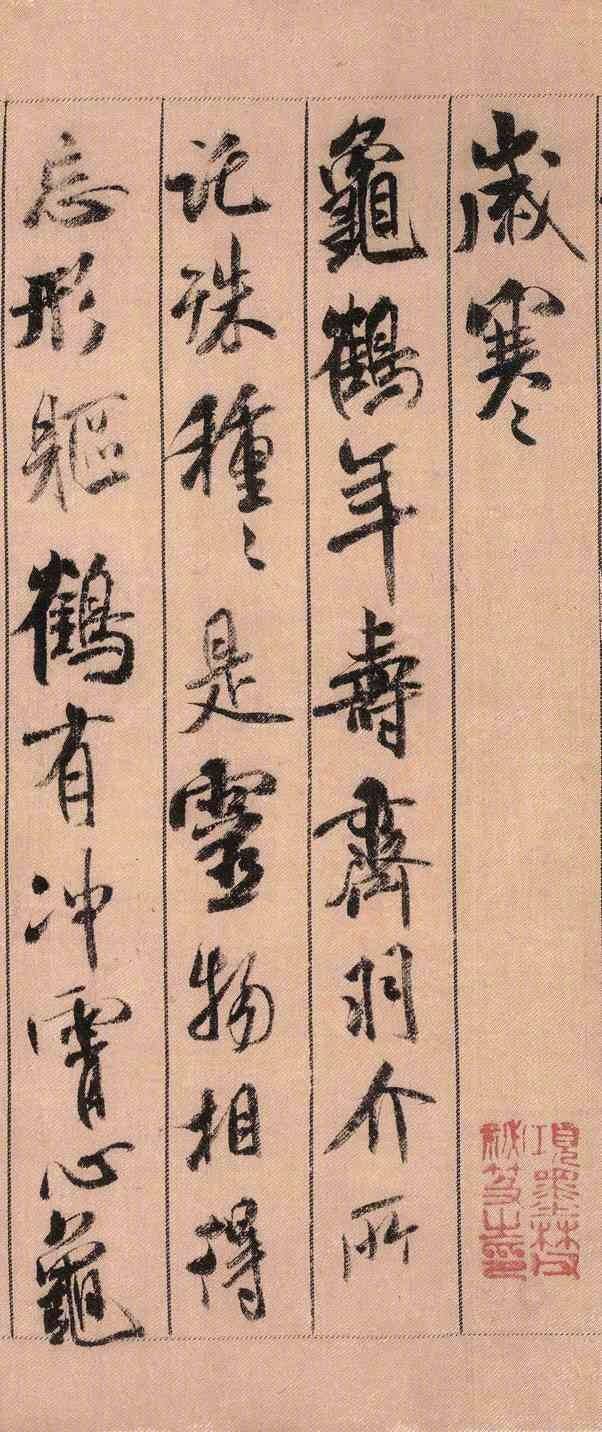 歲寒
龜鶴年壽齊羽介所
託殊種種是靈物相得
忘形軀鶴有冲霄心龜
項墨林父
祕笈之印